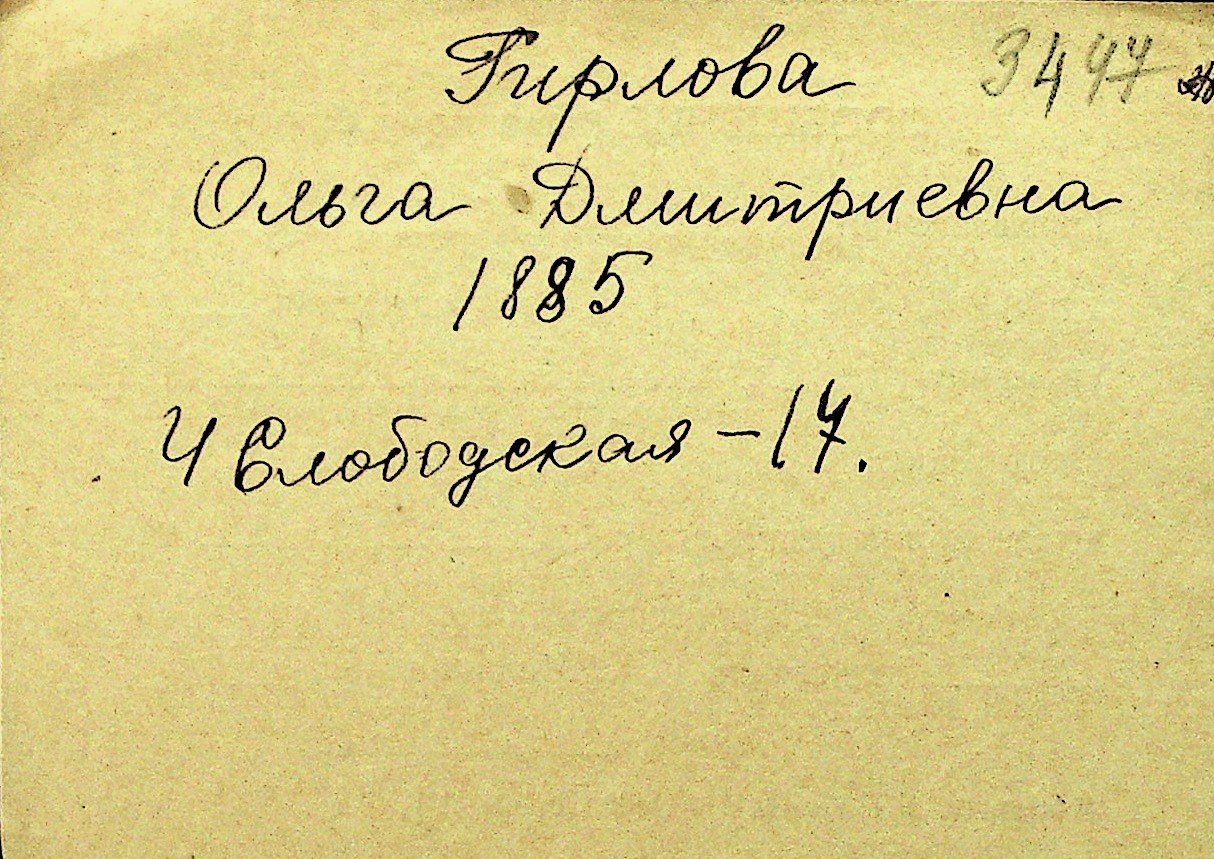 Гирлова 3447
Ольга Дмитриевна
1885
4 Слободская - 17.